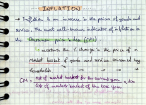 INFLATION
→ Inflation is an increase in the prices of goods and
services. The most well-known indicator of inflation is the
Consumer price index (CPI)
→ measures the % change in the price of a
market basket of goods and services consumed by
households
CPI = cost of market basket in the current year
cost of market basket of the base year